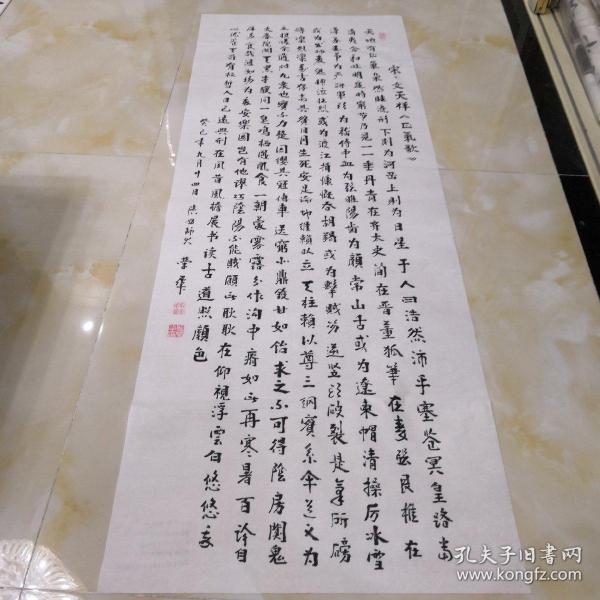 宋·文天祥《正氣歌》
天地有正氣杂然賦流形下則为河岳上則为日星于人曰浩然沛乎塞苍冥皇路當
清夷含和吐明庭時窮节乃見一一垂丹青在齐太史简在晋董狐筆在秦張良椎在
漢蘇武节为严將軍头为嵇侍中血为張睢陽齿为顏常山舌或为遼東帽清操厉冰雪
或为出师表鬼神泣壮烈或为渡江楫慷慨吞胡羯或为擊賊笏逆竖头破裂是氣所磅
礴凜烈萬古存當其贯日月生死安足論地維賴以立天柱賴以尊三纲實系命道义为
之根嗟余遘陽九隶也實不力楚囚纓其冠傳車送窮北鼎鑊甘如饴求之不可得陰房闃鬼
火春院閟天黑牛驥同一皂鸡栖鳳凰食一朝蒙霧露分作沟中瘠如此再寒暑百沴自
辟易哀哉沮洳场为我安樂國豈有他谬巧陰陽不能賊顧此耿耿在仰視浮雲白悠悠我
心悲苍天曷有极哲人日已遠典刑在夙昔風檐展书读古道照顏色
癸巳年九月廿四日
孔夫子旧书网
www.kongfz.com